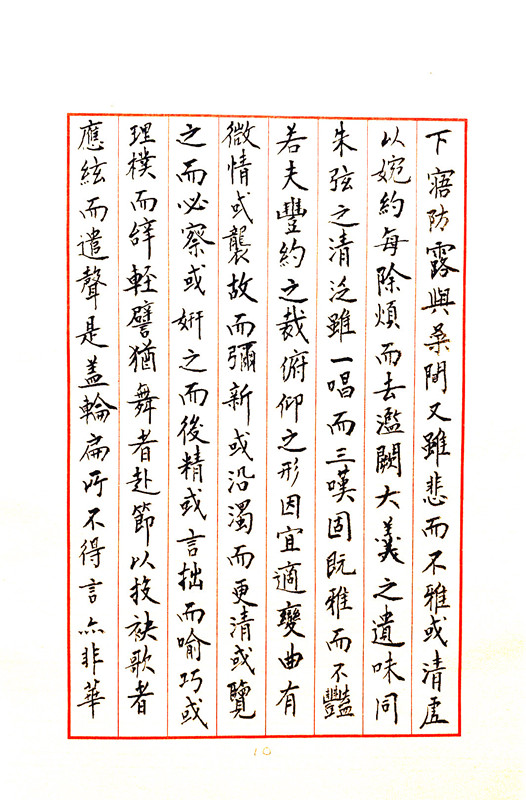 下寤防露與桑間又雖悲而不雅或清虛
以婉約每除煩而去濫闕大羹之遺味同
朱弦之清泛雖一唱而三嘆固既雅而不豔
若夫豐約之裁俯仰之形因宜適變曲有
微情或襲故而彌新或沿濁而更清或覽
之而必察或妍之而後精或言拙而喻巧或
理樸而辝輊譬猶舞者赴節以投袂歌者
應絃而遣聲是盖輪扁所不得言亦非華
10